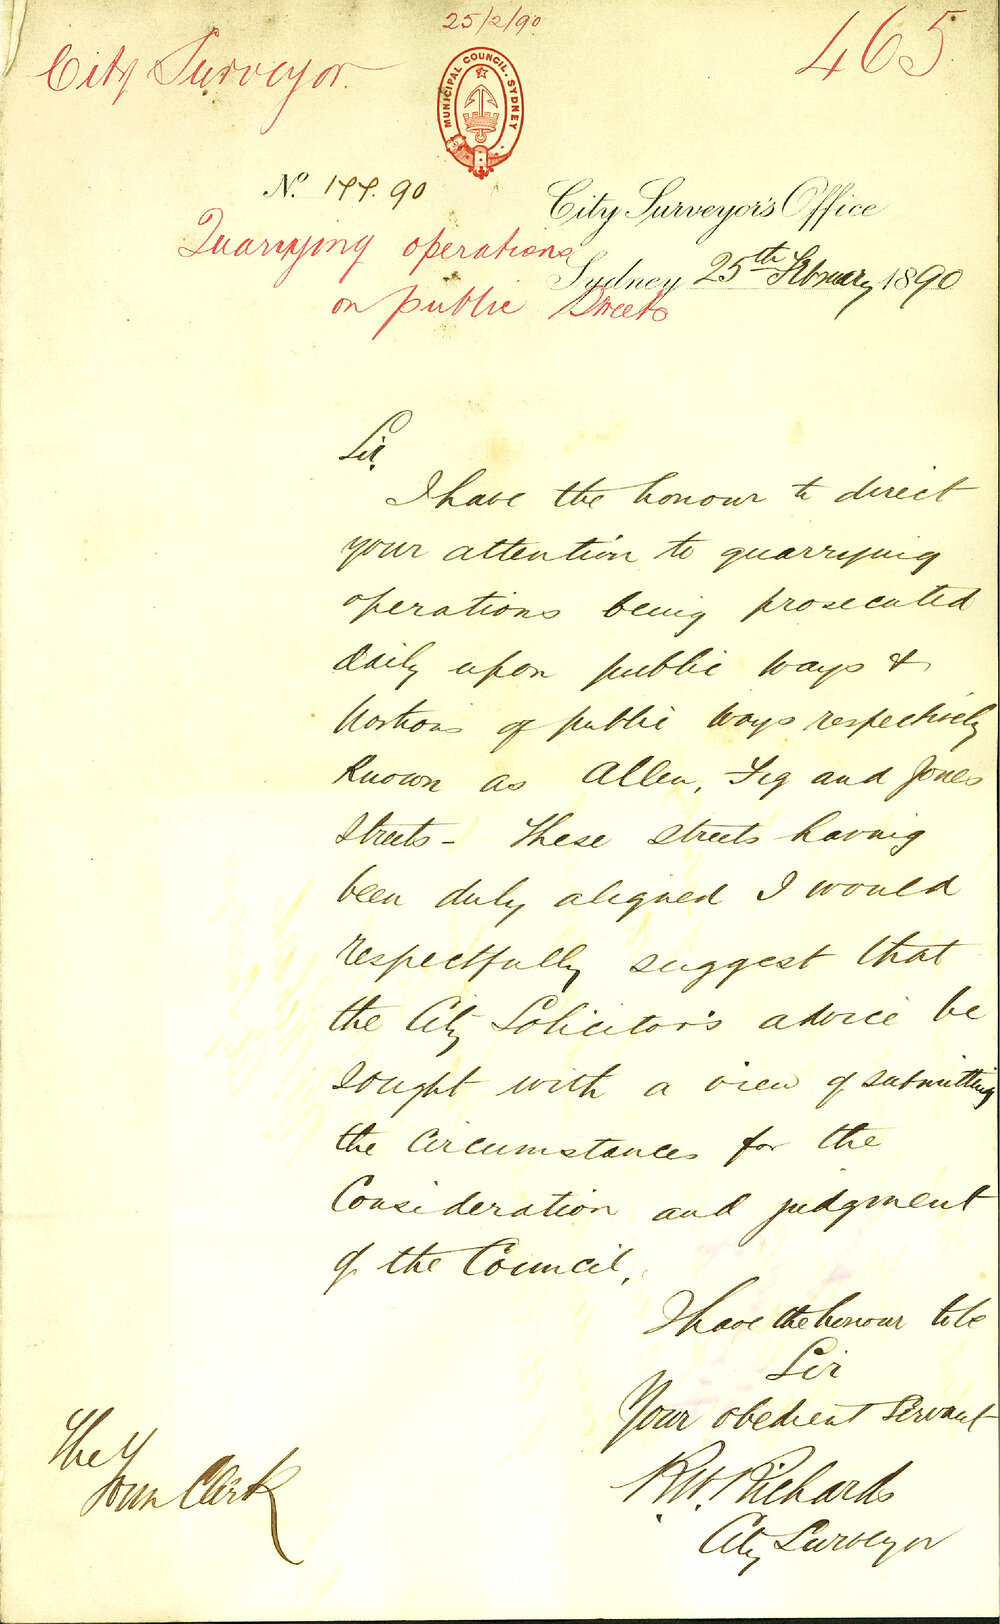 25/2/90
City Surveyor.
465
MUNICIPAL COUNCIL. SYDNEY
No. 144.90
City Surveyor's Office
Quarrying operations
Sydney 25th February 1890
on public Streets
Sir,
I have the honour to direct
your attention to quarrying
operations being prosecuted
daily upon public ways &
portions of public ways respectively
known as Allen, Fig and Jones
Streets - These streets having
been duly aligned I would
respectfully suggest that
the City Solicitor's advice be
sought with a view of submitting
the circumstances for the
Consideration and judgment
of the Council.
I have the honour to be
Sir
Your obedient Servant
R.W. Richards
City Surveyor
The
Town Clerk